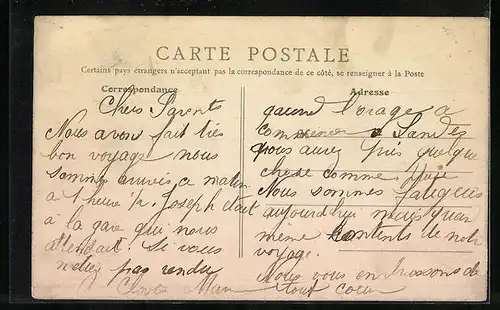 CARTE POSTALE
Certains pays étrangers n'acceptant pas la correspondance de ce côté, se renseigner à la Poste
Correspondance
Chers Parents
Nous avon fait très
bon voyage nous
sommes arrivés ce matin
a 1 heure ½ Joseph était
à la gare qui nous
attendait. Si vous
netiez pas rendu
Adresse
quand l'orage a
commencer
vous aurez pris quelque
chose comme
Nous sommes fatigués
aujourd'hui mais quan
même contents de notre
voyage.
Nous vous embrassons de
tout cœur